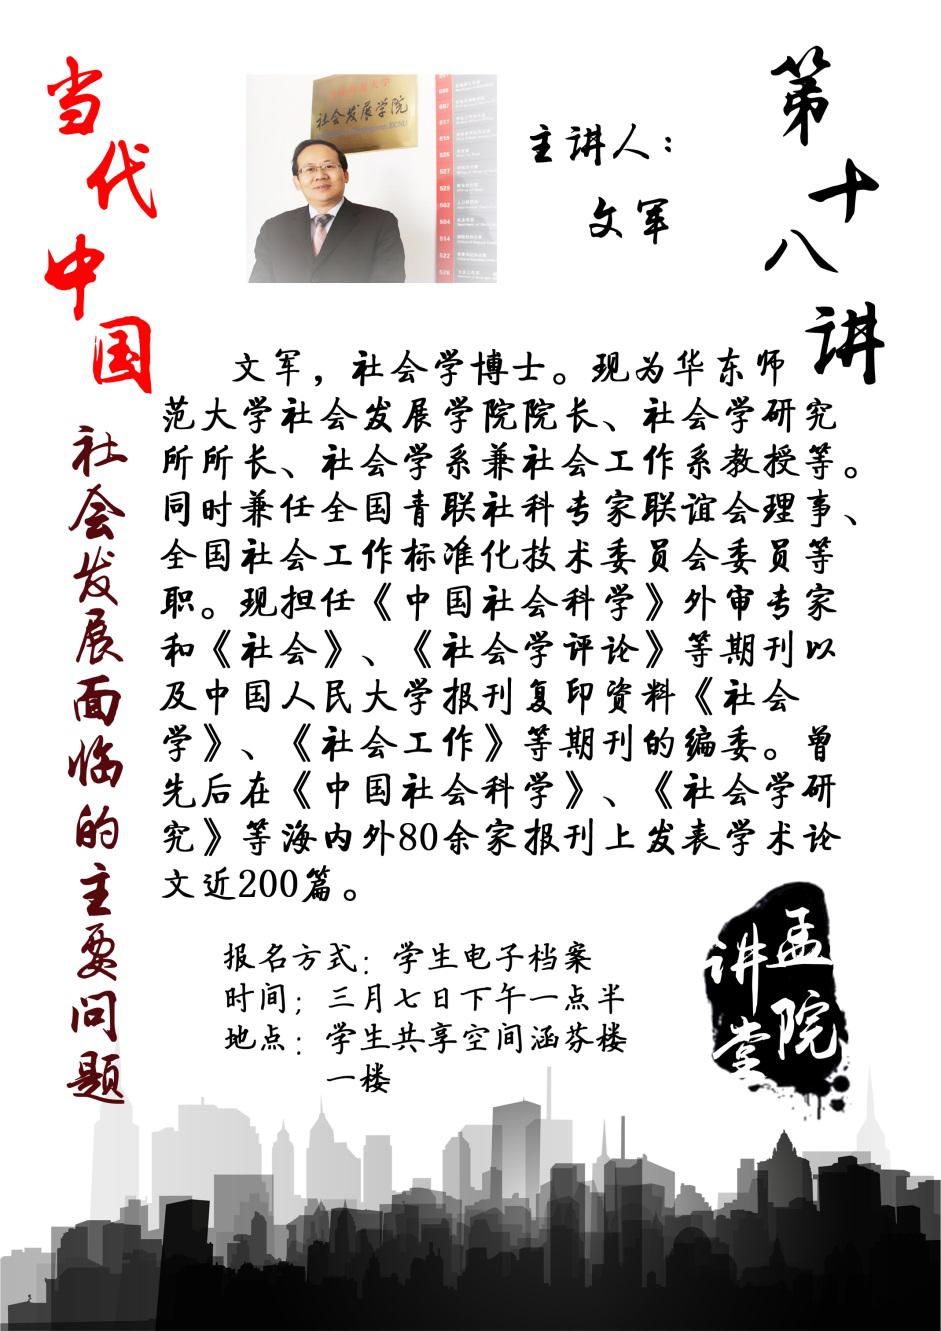 当代中国
社会发展面临的主要问题
第十八讲
社会发展学院
主讲人：
文军
文军，社会学博士。现为华东师
范大学社会发展学院院长、社会学研究
所所长、社会学系兼社会工作系教授等。
同时兼任全国青联社科专家联谊会理事、
全国社会工作标准化技术委员会委员等
职。现担任《中国社会科学》外审专家
和《社会》、《社会学评论》等期刊以
及中国人民大学报刊复印资料《社会
学》、《社会工作》等期刊的编委。曾
先后在《中国社会科学》、《社会学研
究》等海内外80余家报刊上发表学术论
文近200篇。
报名方式：学生电子档案
时间；三月七日下午一点半
地点：学生共享空间涵芬楼
一楼
孟院
讲堂